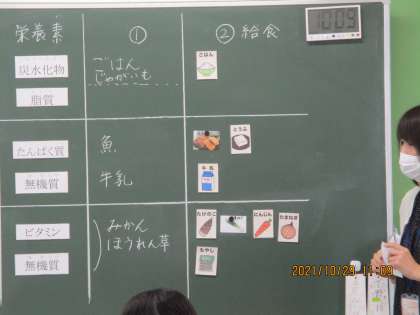 栄養素 ① ② 給食
10:09
炭水化物 ごはん ごはん
じゃがいも
脂質
たんぱく質 魚 とうふ
無機質 牛乳 牛乳
ビタミン みかん たけのこ にんじん たまねぎ
ほうれん草
無機質 もやし
2021/10/29 11:09